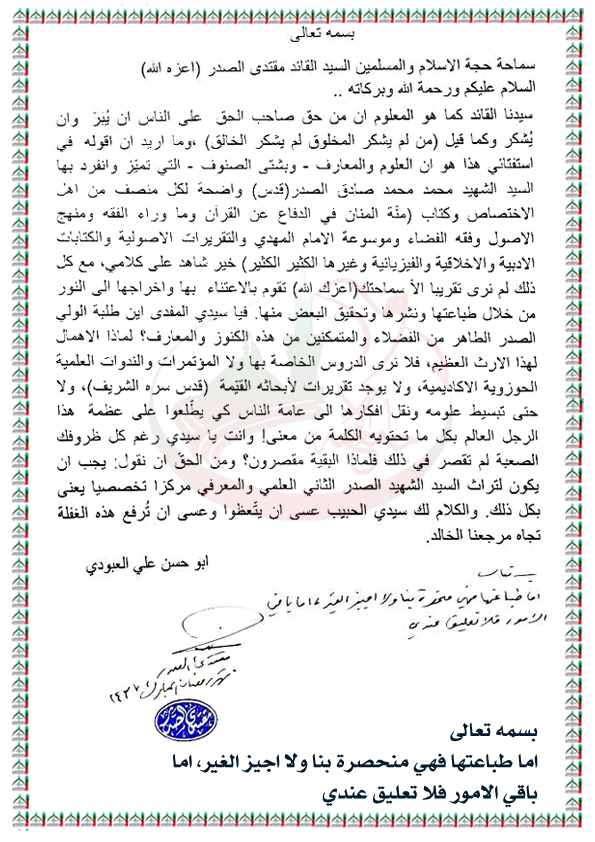 بسمه تعالى
سماحة حجة الاسلام والمسلمين السيد القائد مقتدى الصدر (اعزه الله)
السلام عليكم ورحمة الله وبركاته ..
سيدنا القائد كما هو المعلوم ان من حق صاحب الحق على الناس ان يُبَرّ وان
يُشكر وكما قيل (من لم يشكر المخلوق لم يشكر الخالق) ،وما اريد ان اقوله في
استفتائي هذا هو ان العلوم والمعارف - وبشتى الصنوف - التي تميّز وانفرد بها
السيد الشهيد محمد محمد صادق الصدر(قدس) واضحة لكل منصف من اهل
الاختصاص وكتاب (منّة المنان في الدفاع عن القرآن وما وراء الفقه ومنهج
الاصول وفقه الفضاء وموسوعة الامام المهدي والتقريرات الاصولية والكتابات
الادبية والاخلاقية والفيزيائية وغيرها الكثير الكثير) خير شاهد على كلامي، مع كل
ذلك لم نرى تقريبا الاّ سماحتك(اعزك الله) تقوم بالاعتناء بها واخراجها الى النور
من خلال طباعتها ونشرها وتحقيق البعض منها. فيا سيدي المفدى اين طلبة الولي
الصدر الطاهر من الفضلاء والمتمكنين من هذه الكنوز والمعارف؟ لماذا الاهمال
لهذا الارث العظيم، فلا نرى الدروس الخاصة بها ولا المؤتمرات والندوات العلمية
الحوزوية الاكاديمية، ولا يوجد تقريرات لأبحاثه القيّمة (قدس سره الشريف)، ولا
حتى تبسيط علومه ونقل افكارها الى عامة الناس كي يطّلعوا على عظمة هذا
الرجل العالم بكل ما تحتويه الكلمة من معنى! وانت يا سيدي رغم كل ظروفك
الصعبة لم تقصر في ذلك فلماذا البقية مقصرون؟ ومن الحقّ ان نقول: يجب ان
يكون لتراث السيد الشهيد الصدر الثاني العلمي والمعرفي مركزا تخصصيا يعنى
بكل ذلك. والكلام لك سيدي الحبيب عسى ان يتّعظوا وعسى ان تُرفع هذه الغفلة
تجاه مرجعنا الخالد.
ابو حسن علي العبودي
بسمه تعالى
اما طباعتها فهي منحصرة بنا ولا اجيز الغير، اما باقي
الامور فلا تعليق عندي
مقتدى الصدر
شهر رمضان المبارك ١٤٣٧
مقتدى الصدر
بسمه تعالى
اما طباعتها فهي منحصرة بنا ولا اجيز الغير، اما
باقي الامور فلا تعليق عندي